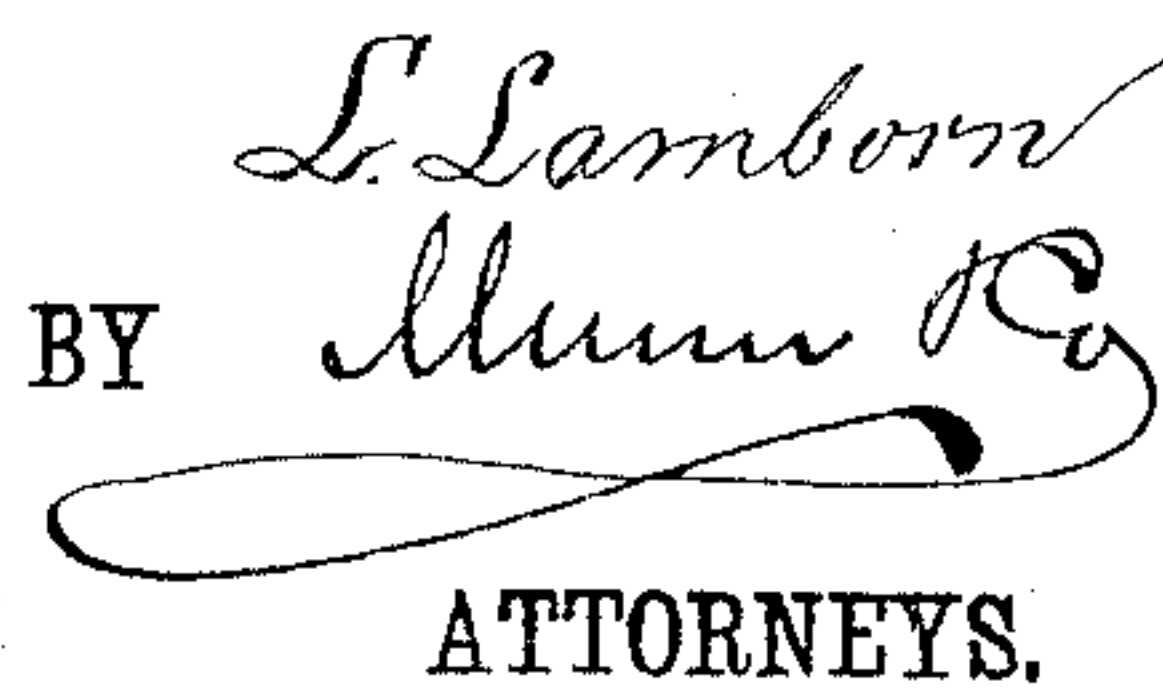 L. Lamborn
BY Munn & Co
ATTORNEYS.